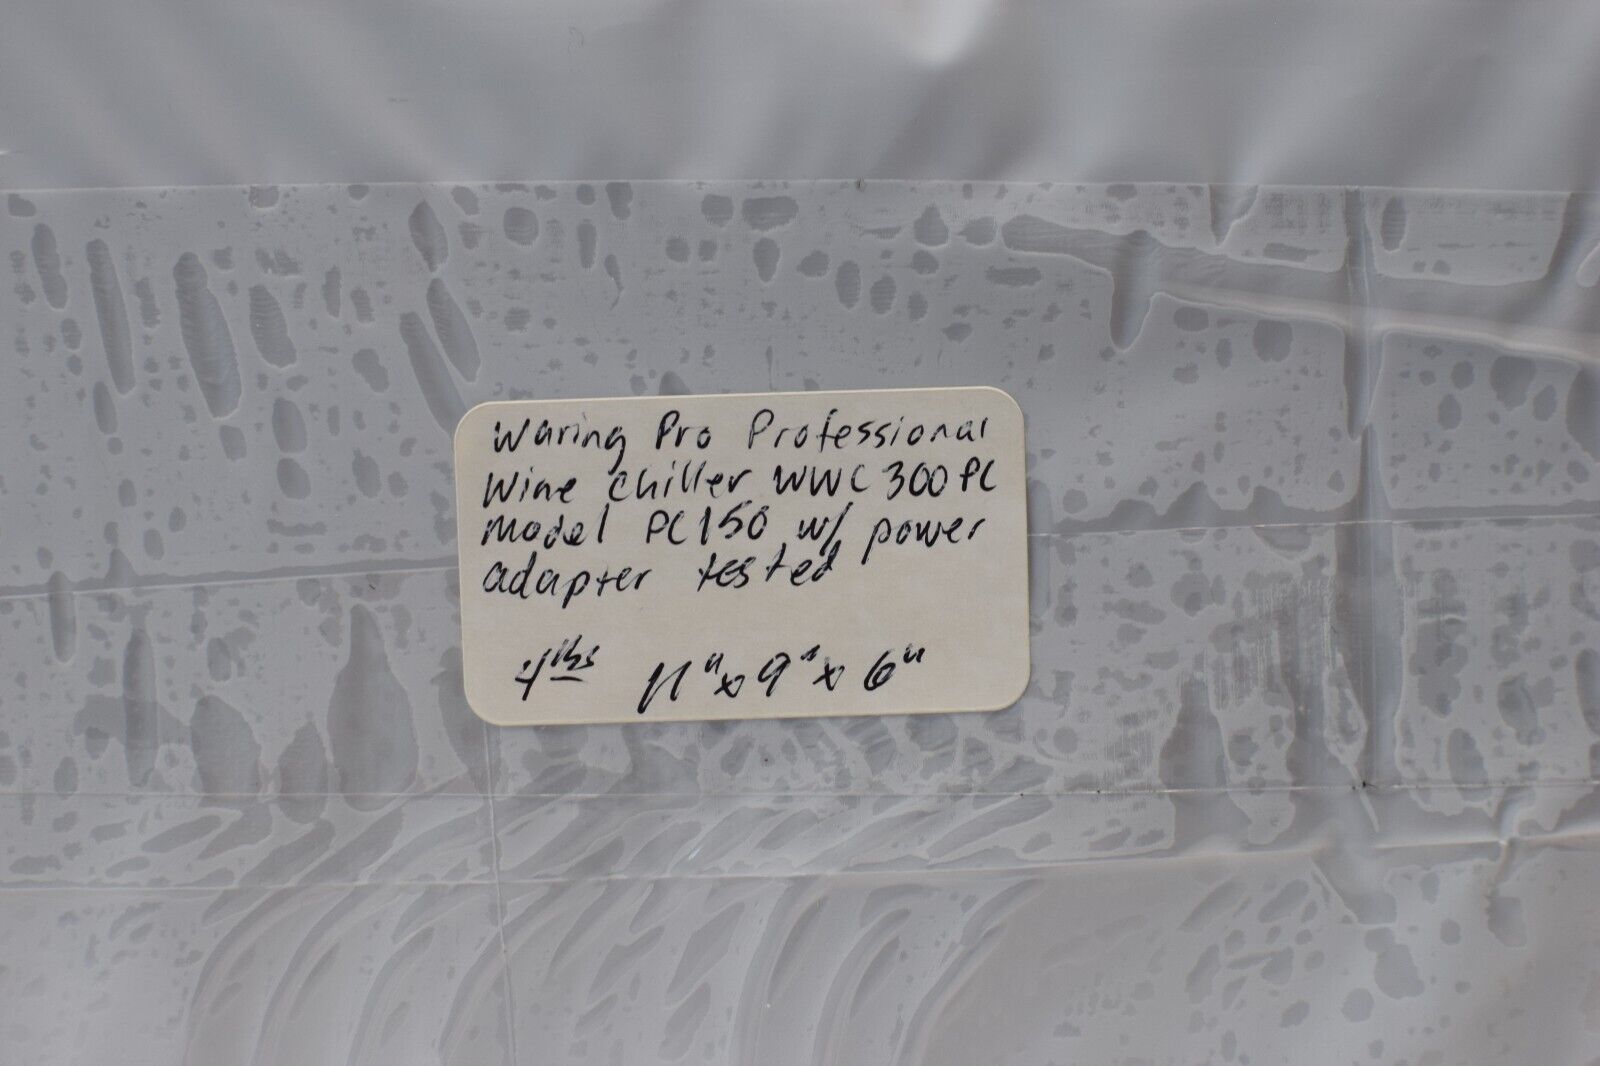 Waring Pro Professional
Wine chiller WWC 300 PC
Model PC150 w/ power
adapter tested
4 lbs 11" x 9" x 6"